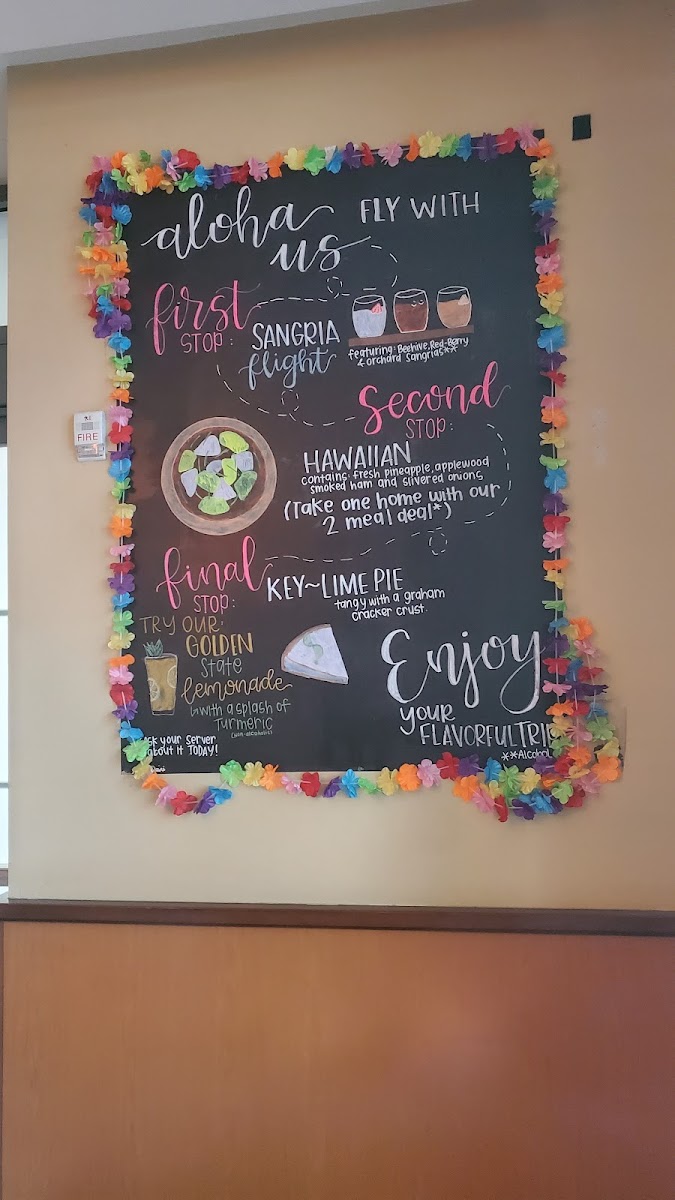 aloha FLY WITH
us
first
STOP:
SANGRIA
flight
featuring: Beehive, Red-Berry
& Orchard Sangrias**
second
STOP:
HAWAIIAN
contains fresh pineapple, applewood
smoked ham and slivered onions
(Take one home with our
2 meal deal*)
FIRE
final
STOP:
KEY~LIME PIE
tangy with a graham
cracker crust.
TRY OUR:
GOLDEN
State
lemonade
with a splash of
Turmeric
(non-alcoholic)
ask your server
about it TODAY!
Enjoy
YOUR
FLAVORFUL TRIP
**Alcohol